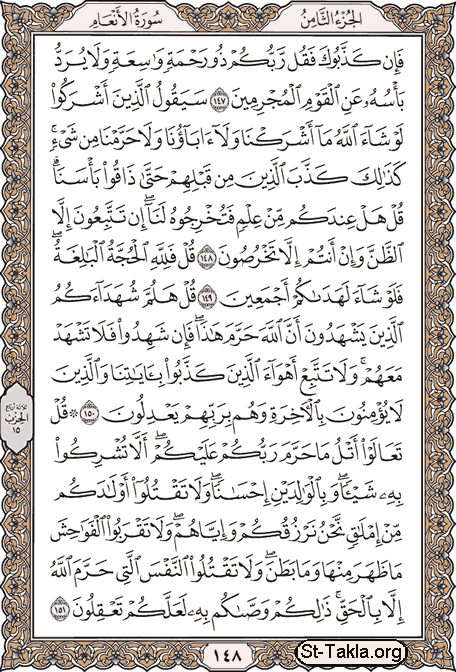 الجزء الثامن
سورة الأنعام
فَإِن كَذَّبُوكَ فَقُل رَّبُّكُمْ ذُو رَحْمَةٍ وَٰسِعَةٍ وَلَا يُرَدُّ
بَأْسُهُۥ عَنِ ٱلْقَوْمِ ٱلْمُجْرِمِينَ ١٤٧ سَيَقُولُ ٱلَّذِينَ أَشْرَكُوا۟
لَوْ شَآءَ ٱللَّهُ مَآ أَشْرَكْنَا وَلَآ ءَابَآؤُنَا وَلَا حَرَّمْنَا مِن شَىْءٍ ۚ
كَذَٰلِكَ كَذَّبَ ٱلَّذِينَ مِن قَبْلِهِمْ حَتَّىٰ ذَاقُوا۟ بَأْسَنَا ۗ
قُلْ هَلْ عِندَكُم مِّنْ عِلْمٍ فَتُخْرِجُوهُ لَنَآ ۖ إِن تَتَّبِعُونَ إِلَّا
ٱلظَّنَّ وَإِنْ أَنتُمْ إِلَّا تَخْرُصُونَ ١٤٨ قُلْ فَلِلَّهِ ٱلْحُجَّةُ ٱلْبَٰلِغَةُ ۖ
فَلَوْ شَآءَ لَهَدَىٰكُمْ أَجْمَعِينَ ١٤٩ قُلْ هَلُمَّ شُهَدَآءَكُمُ
ٱلَّذِينَ يَشْهَدُونَ أَنَّ ٱللَّهَ حَرَّمَ هَٰذَا ۖ فَإِن شَهِدُوا۟ فَلَا تَشْهَدْ
مَعَهُمْ ۚ وَلَا تَتَّبِعْ أَهْوَآءَ ٱلَّذِينَ كَذَّبُوا۟ بِـَٔايَٰتِنَا وَٱلَّذِينَ
لَا يُؤْمِنُونَ بِٱلْـَٔاخِرَةِ وَهُم بِرَبِّهِمْ يَعْدِلُونَ ١٥٠ ۞ قُلْ
تَعَالَوْا۟ أَتْلُ مَا حَرَّمَ رَبُّكُمْ عَلَيْكُمْ ۖ أَلَّا تُشْرِكُوا۟
بِهِۦ شَيْـًٔا ۖ وَبِٱلْوَٰلِدَيْنِ إِحْسَٰنًا ۖ وَلَا تَقْتُلُوٓا۟ أَوْلَٰدَكُم
مِّنْ إِمْلَٰقٍ ۖ نَّحْنُ نَرْزُقُكُمْ وَإِيَّاهُمْ ۖ وَلَا تَقْرَبُوا۟ ٱلْفَوَٰحِشَ
مَا ظَهَرَ مِنْهَا وَمَا بَطَنَ ۖ وَلَا تَقْتُلُوا۟ ٱلنَّفْسَ ٱلَّتِى حَرَّمَ ٱللَّهُ
إِلَّا بِٱلْحَقِّ ۚ ذَٰلِكُمْ وَصَّىٰكُم بِهِۦ لَعَلَّكُمْ تَعْقِلُونَ ١٥١
ثلاثة أرباع
الحزب
١٥
١٤٨
St-Takla.org